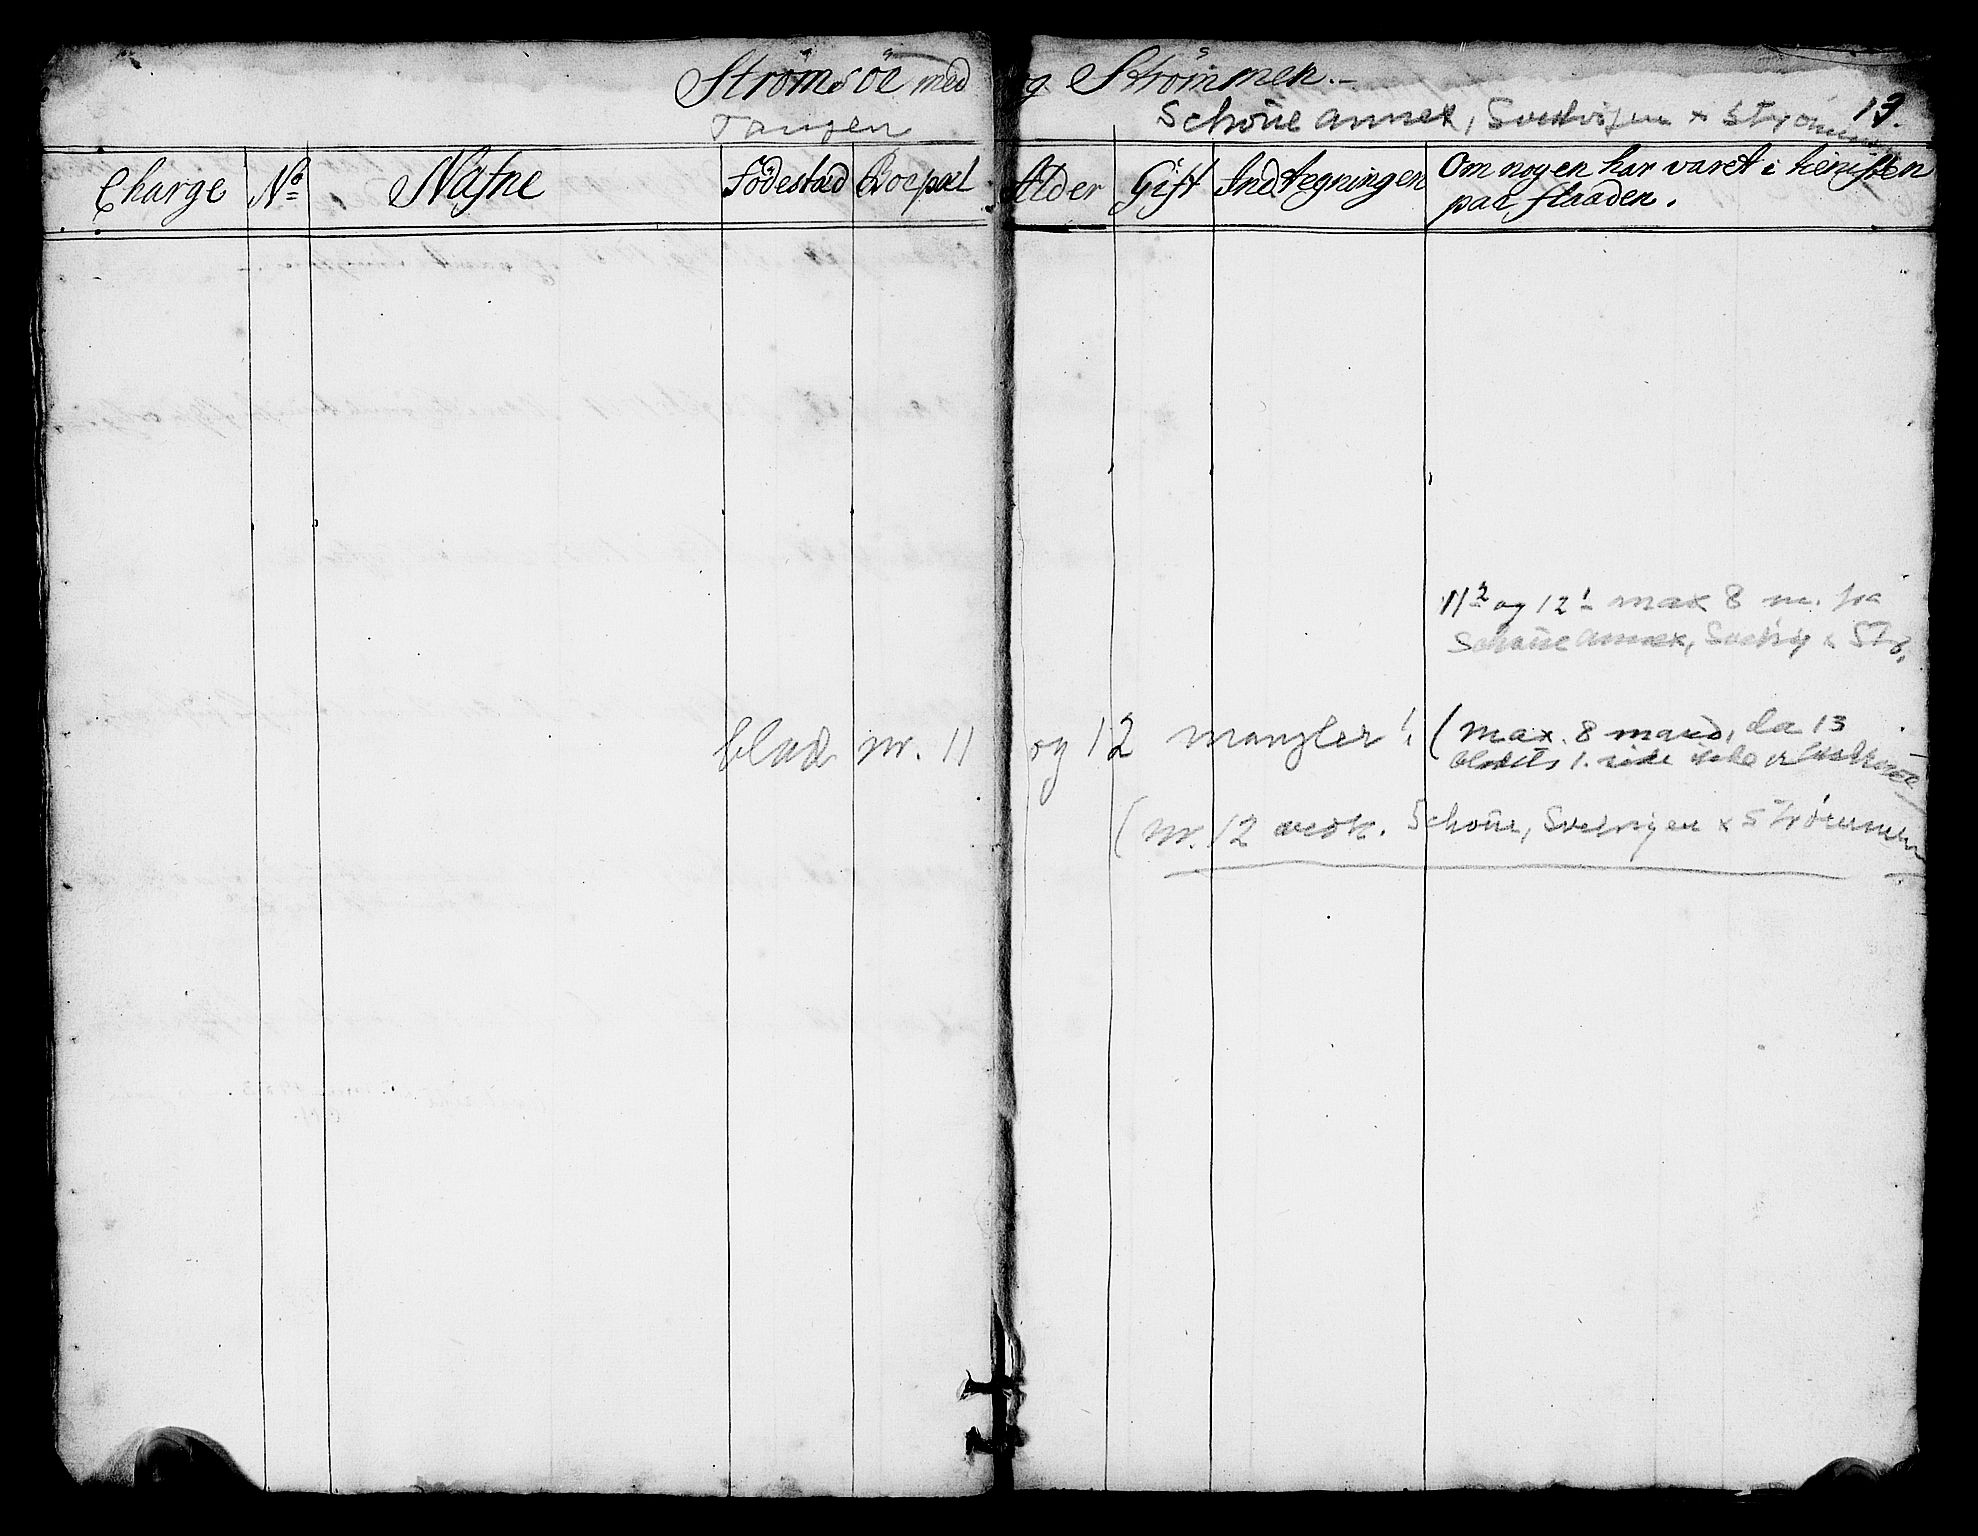 Strömsöe med og Strömmen.-
Tangen
Schoue annex, Svelvigen x Strömmen 13.
Charge No Nafne Födestæd Boepæl Alder Gift Indtegningen Om nogen har været i tienisten
paa flaaden.
11² og 12¹ max 8 m. fra
Schoue annex, Svelvig x Str.
blad nr. 11 og 12 mangler! (max. 8 mand, da 13
bladets 1. side ikke er
(nr. 12 vedk. Schoue, Svelvigen x Strömmen